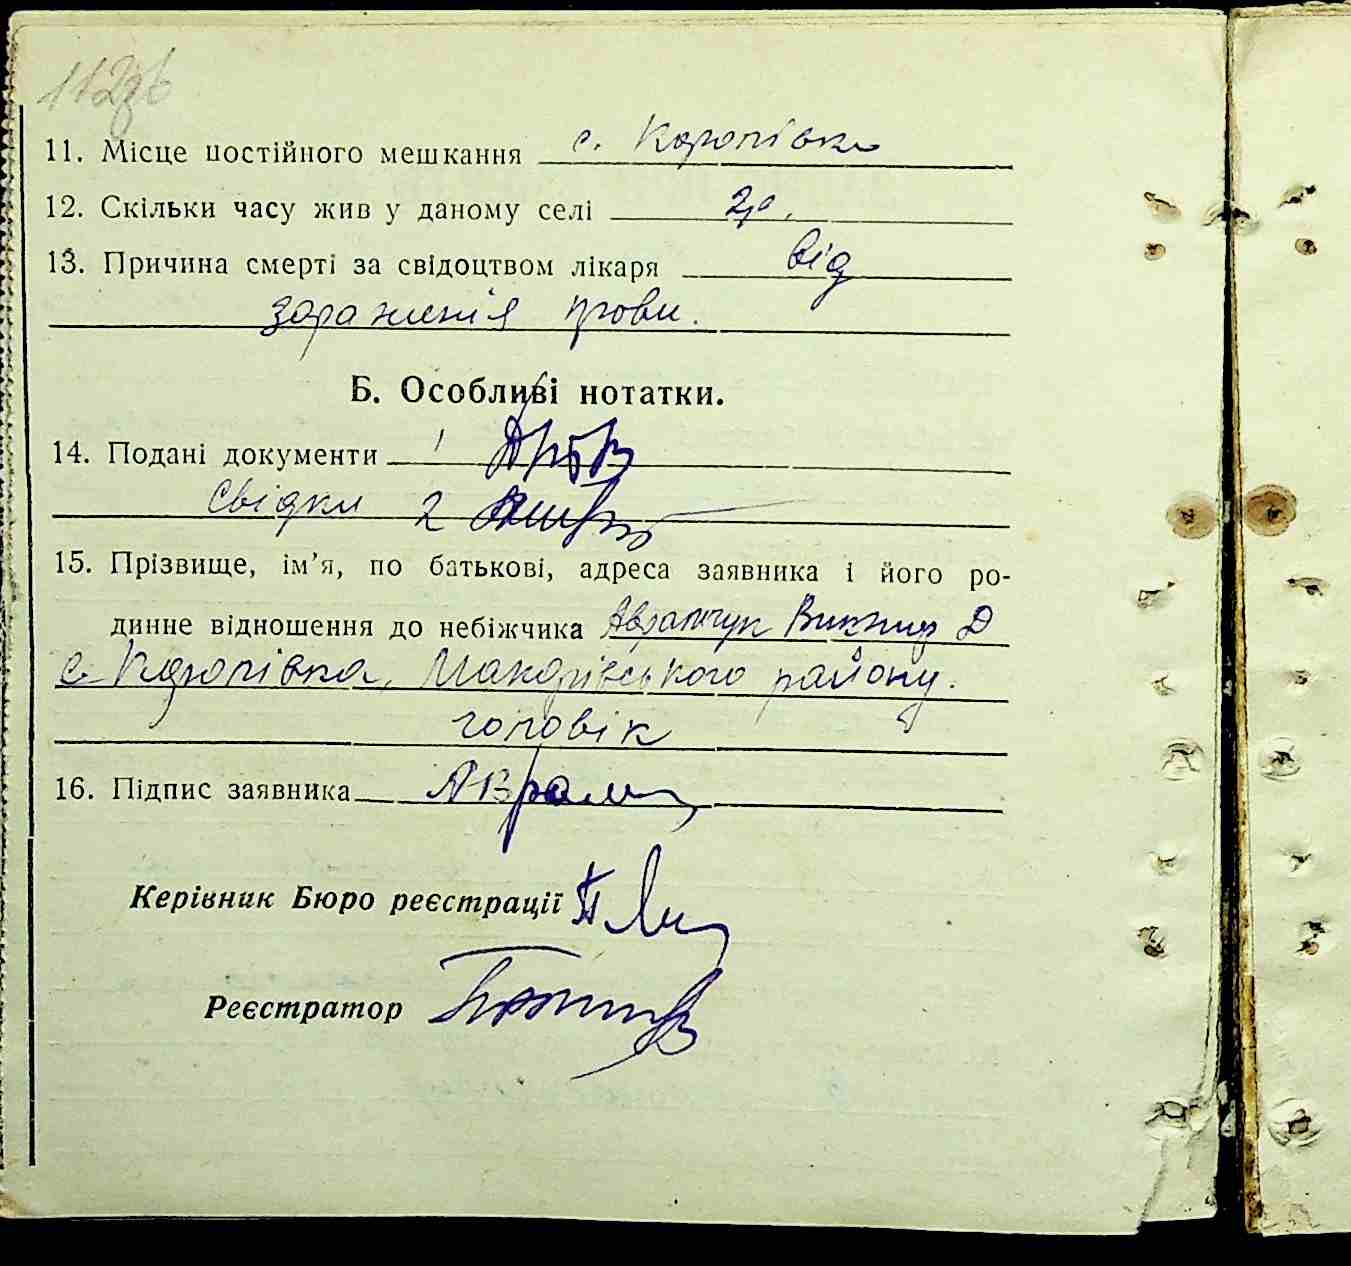 112зв
11. Місце постійного мешкання с. Королівка
12. Скільки часу жив у даному селі
13. Причина смерті за свідоцтвом лікаря від
зараженія крови.
Б. Особливі нотатки.
14. Подані документи
Свідки 2
15. Прізвище, ім’я, по батькові, адреса заявника і його ро-
динне відношення до небіжчика Аврамчук Д
с. Королівка, Макарівського району.
чоловік
16. Підпис заявника Аврам
Керівник Бюро реєстрації
Реєстратор